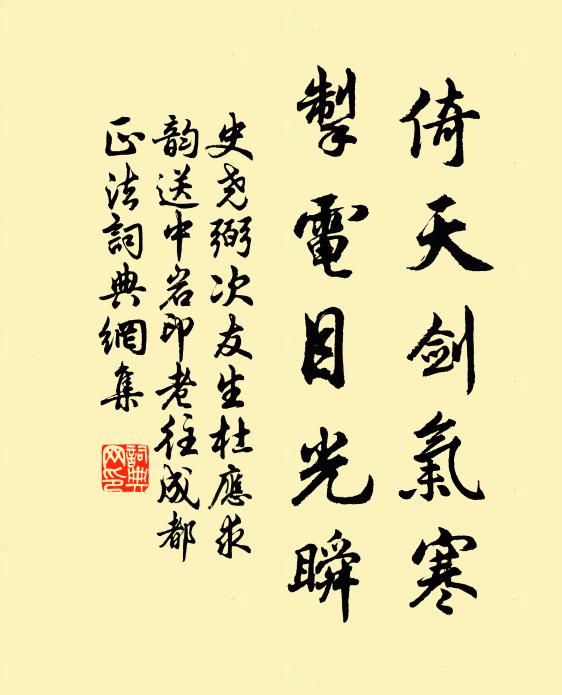 倚天劍氣寒
掣電目光瞬
史堯弼次友生杜應求
韵送中岩印老往成都
正法詞典網集
詞典
网印